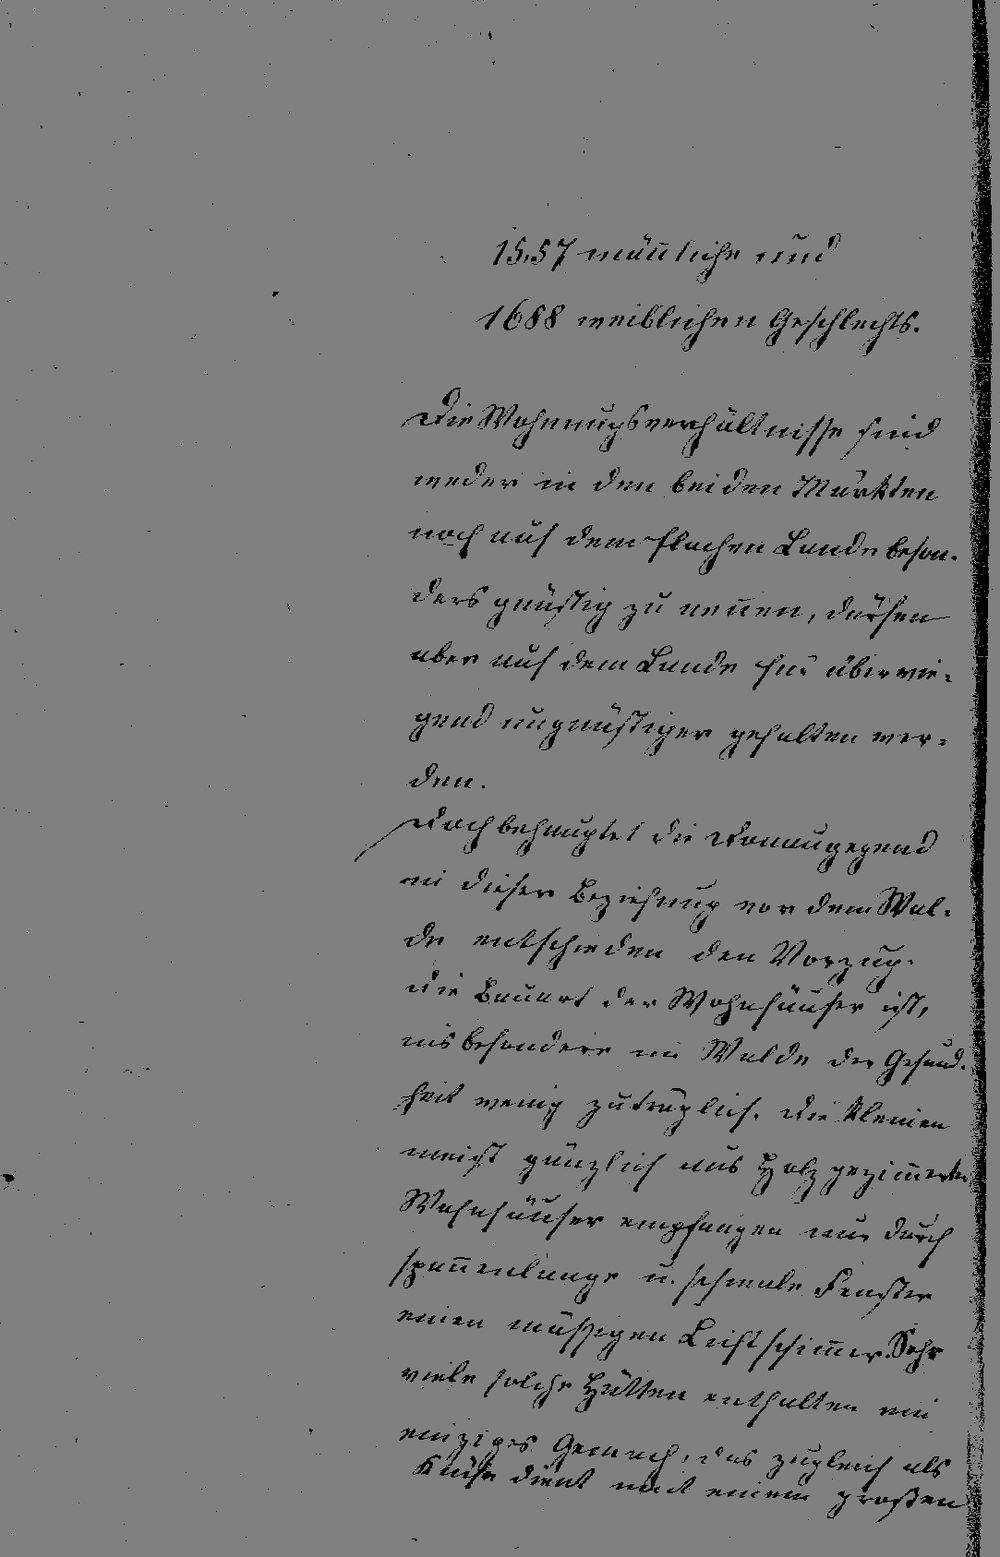 1557 männliche und
1688 weiblichen Geschlechts.
Die Wohnungsverhältnisse sind
weder in den beiden Märkten
noch auf dem flachen Lande beson-
ders günstig zu nennen, dürfen
aber auf dem Lande für überwie-
gend ungünstiger gehalten wer-
den.
Doch behauptet die Donaugegend
in dieser Beziehung vor dem Wal-
de entschieden den Vorzug.
Die Bauart der Wohnhäuser ist,
insbesondere im Walde der Gesund-
heit wenig zuträglich. Die kleinen
meist gänzlich aus Holz gezimmerten
Wohnhäuser empfangen nur durch
spannenlange u. schmale Fenster
einen mässigen Lichtschimmer. Sehr
viele solche Hütten enthalten ein
einziges Gemach, das zugleich als
Küche dient mit einem großen